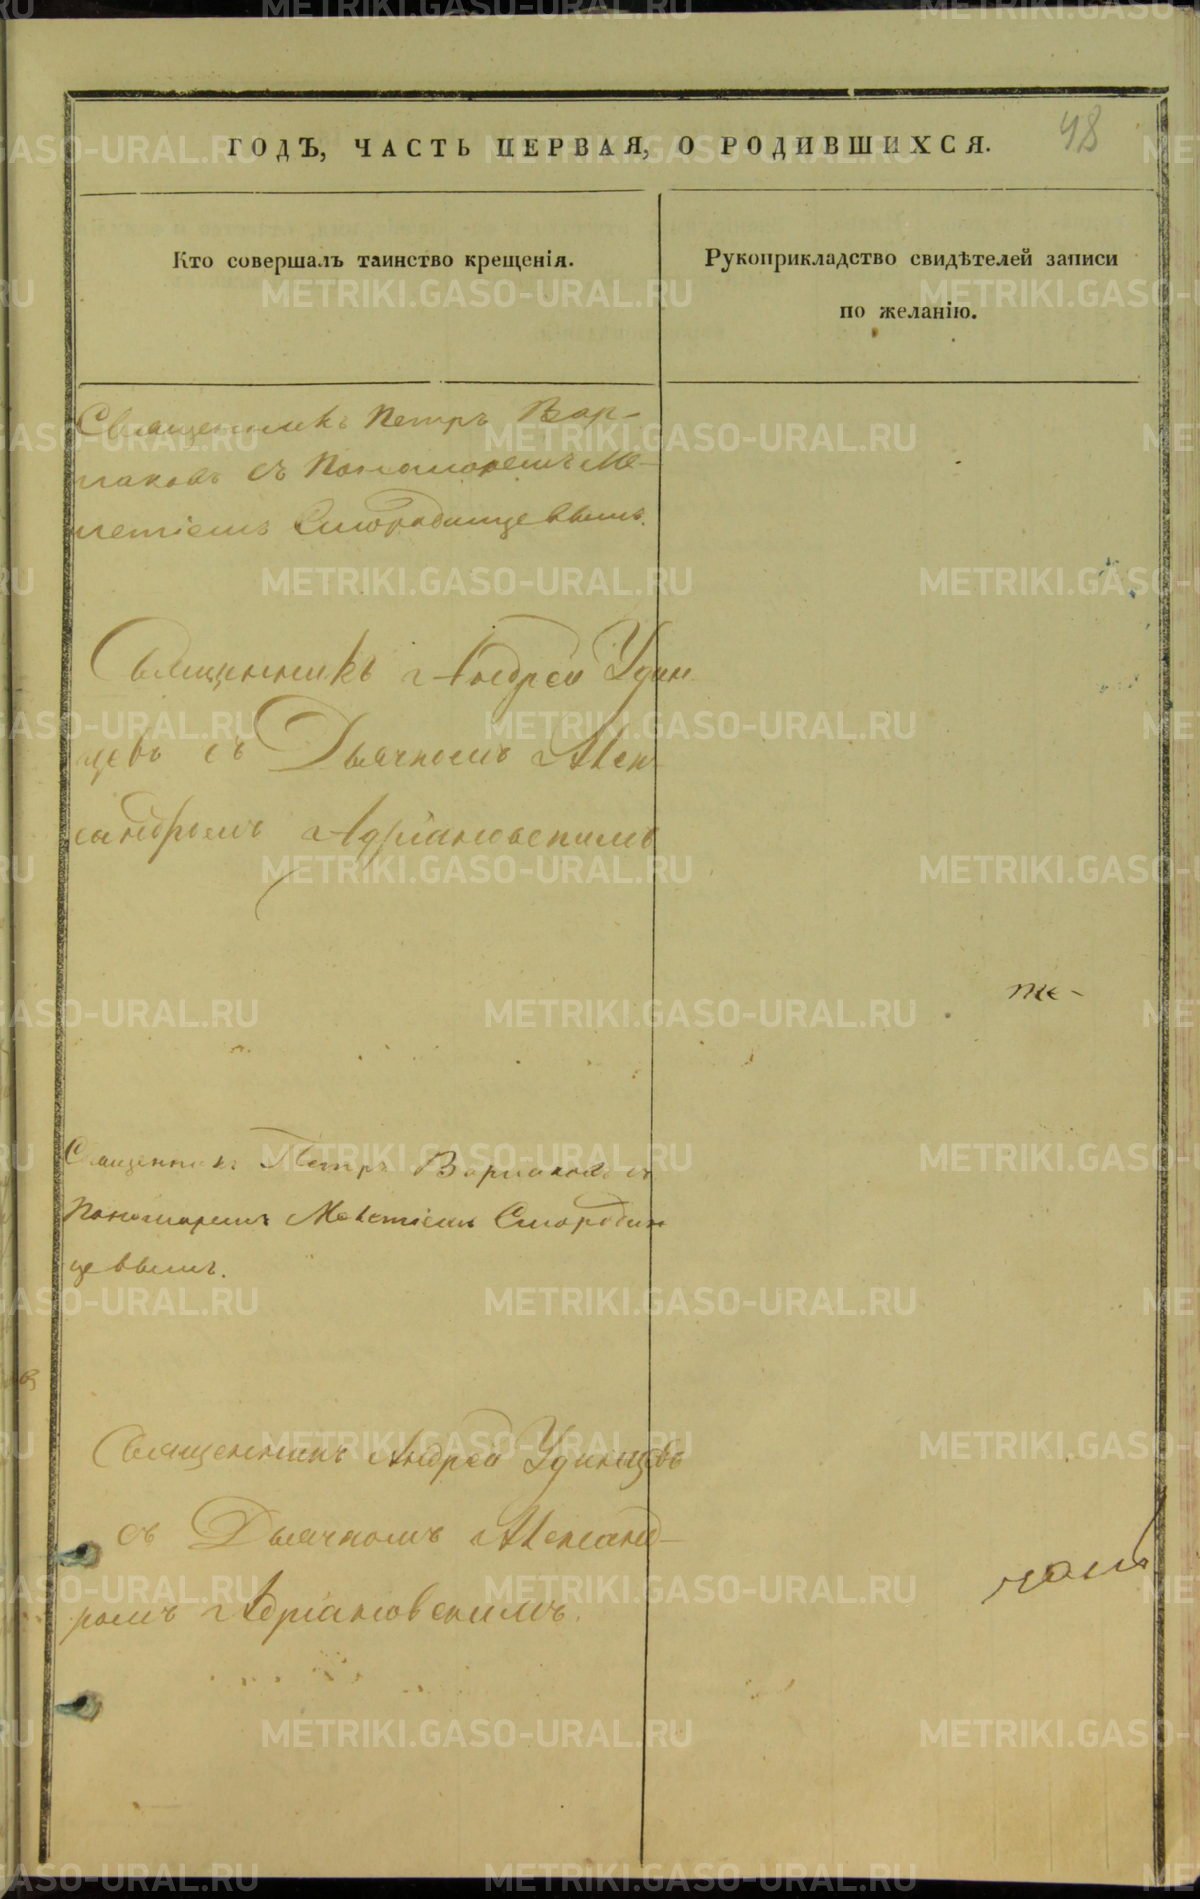 48
ГОДЪ, ЧАСТЬ ПЕРВАЯ, О РОДИВШИХСЯ.
Кто совершалъ таинство крещенія.
Рукоприкладство свидѣтелей записи
по желанію.
Священникъ Петръ Вар-
лаковъ съ Пономаремъ Ме-
летіемъ Смородинцевымъ.
Священникъ Андрей Удин
цевъ съ Дьячкомъ Алек
сандромъ Адріановскимъ
Священникъ Петръ Варлаковъ съ
Пономаремъ Мелетіемъ Смородин
цевымъ.
Священникъ Андрей Удинцевъ
съ Дьячкомъ Александ-
ромъ Адріановскимъ.
METRIKI.GASO-URAL.RU